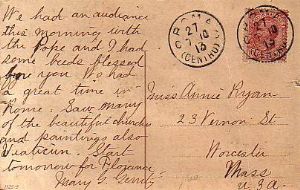 We had an audience
this morning with
the Pope and I had
some beeds blessed
for you. We had
a great time in
Rome. Saw many
of the beautiful churches
and paintings also
Vatican. Start
tomorrow for Florence
Mary G.
ROMA
27
10
13
(CENTRO)
27
10
13
(CENTRO)
Miss Annie Ryan
23 Vernon St
Worcester
Mass
U.S.A.